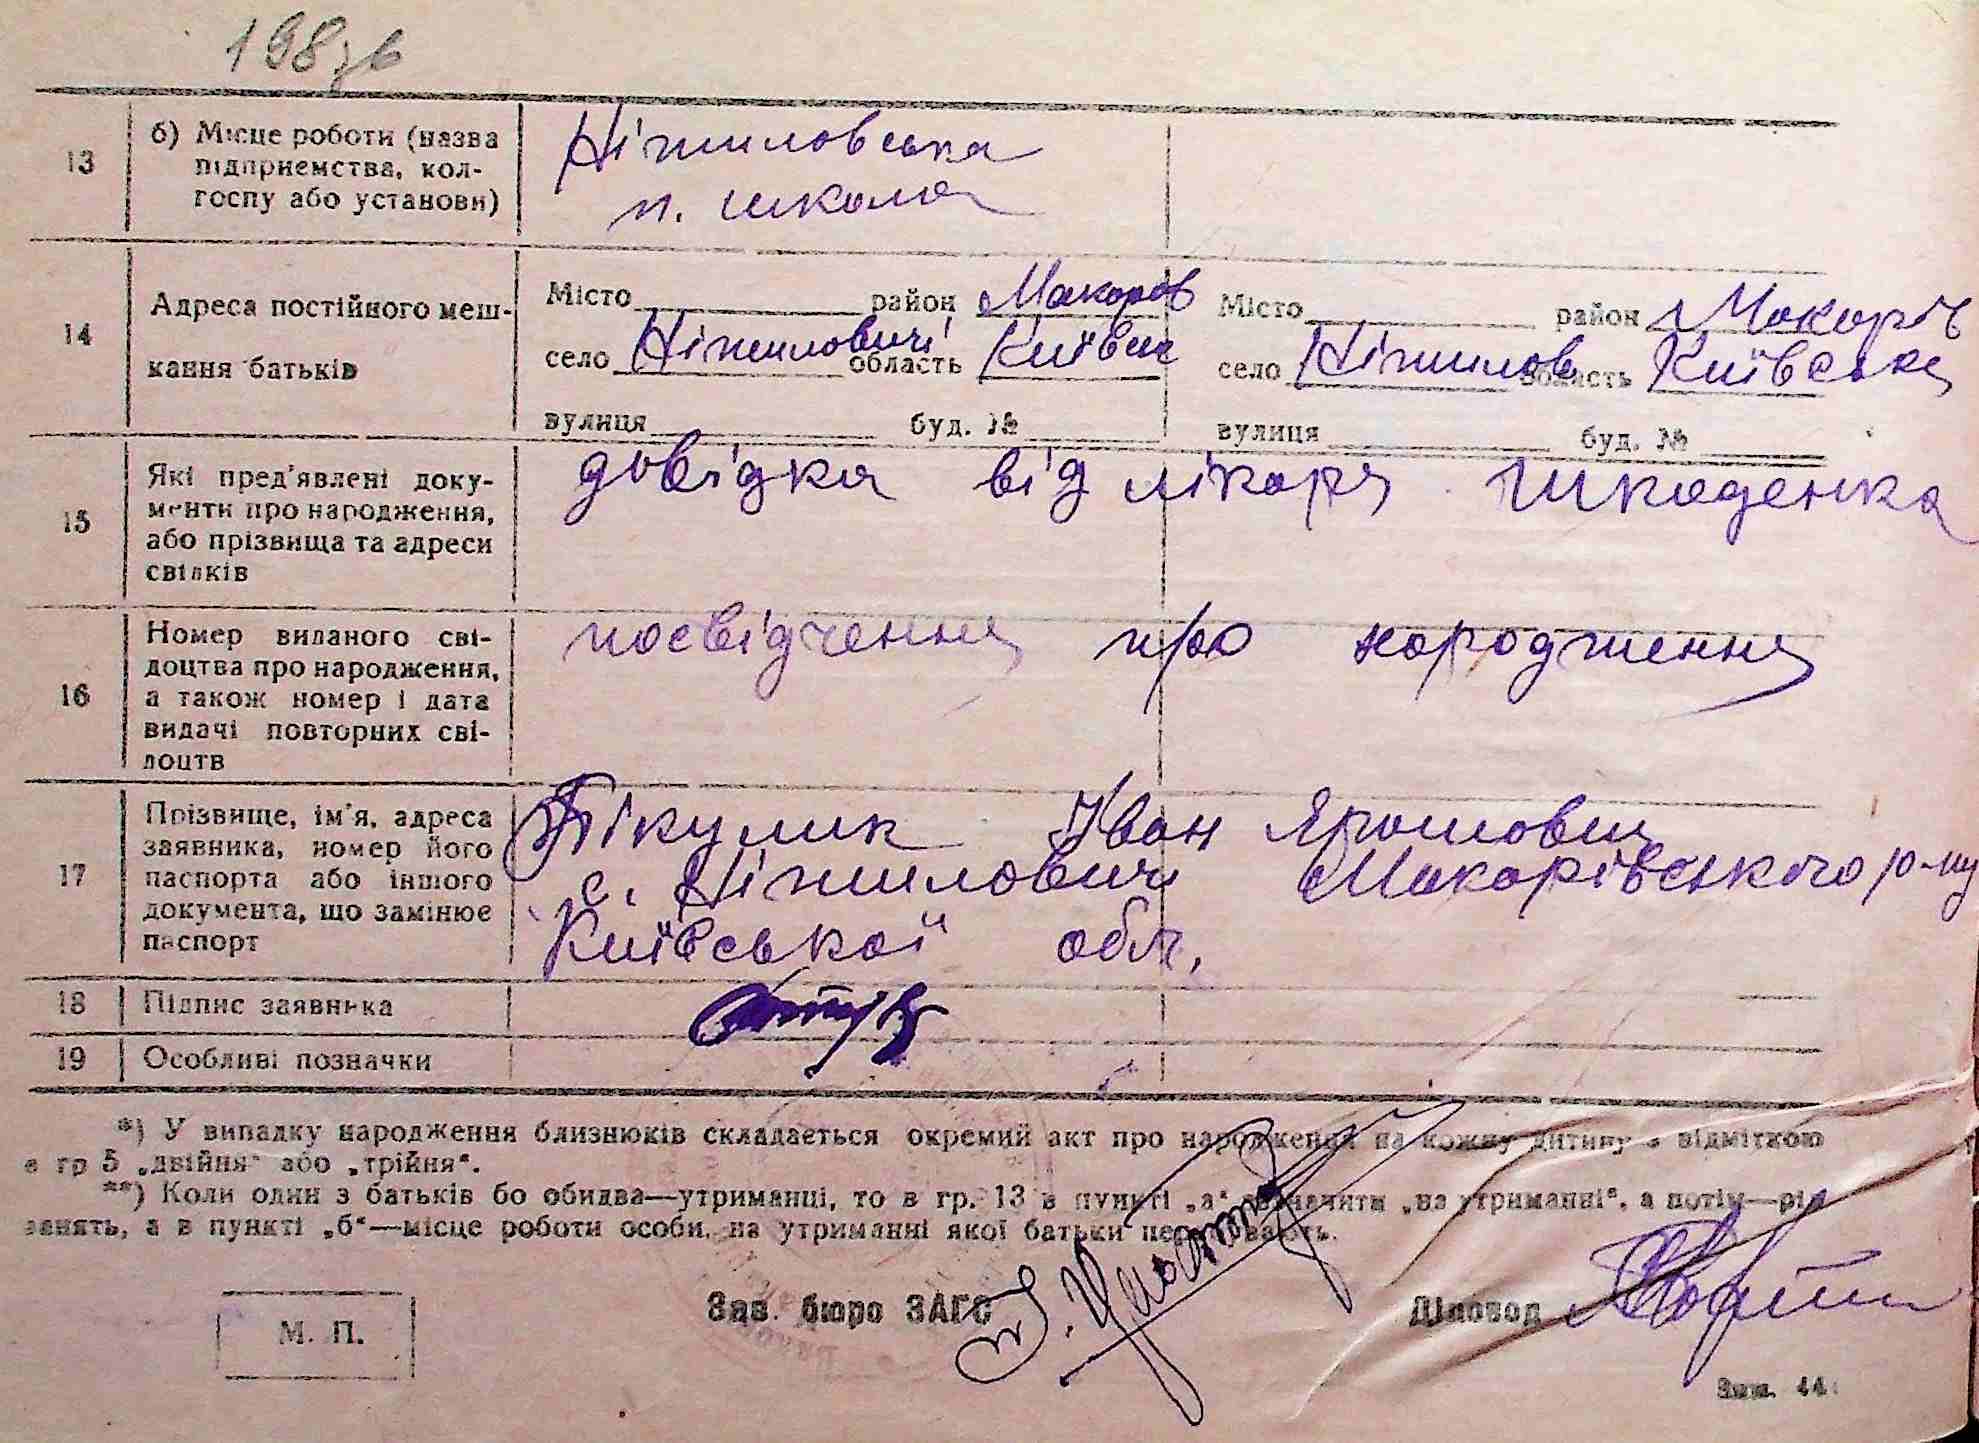 198 зв
13
б) Місце роботи (назва
підприємства, кол-
госпу або установи)
Ніжиловська
п. школа
14
Адреса постійного меш-
кання батьків
Місто район Макоров
село Ніжиловичі область Київськ
вулиця буд. №
Місто район Макорів
село Ніжилов область Київська
вулиця буд. №
15
Які пред'явлені доку-
менти про народження,
або прізвища та адреси
свідків
довідка від лікаря Шкаденка
16
Номер виданого сві-
доцтва про народження,
а також номер і дата
видачі повторних сві-
доцтв
посвідчення про народження
17
Прізвище, ім'я, адреса
заявника, номер його
паспорта або іншого
документа, що замінює
паспорт
Пікулик Іван Ярошович
с. Ніжиловичі Макарівського р-ну
Київської обл.
18
Підпис заявника
19
Особливі позначки
*) У випадку народження близнюків складається окремий акт про народження на кожну дитину з відміткою
в гр 5 „двійня" або „трійня".
**) Коли один з батьків бо обидва—утриманці, то в гр. 13 в пункті „а" зазначити „на утриманні", а потім—рід
занять, а в пункті „б"—місце роботи особи, на утриманні якої батьки перебувають.
М. П.
Зав. бюро ЗАГС
Діловод
Зам. 44